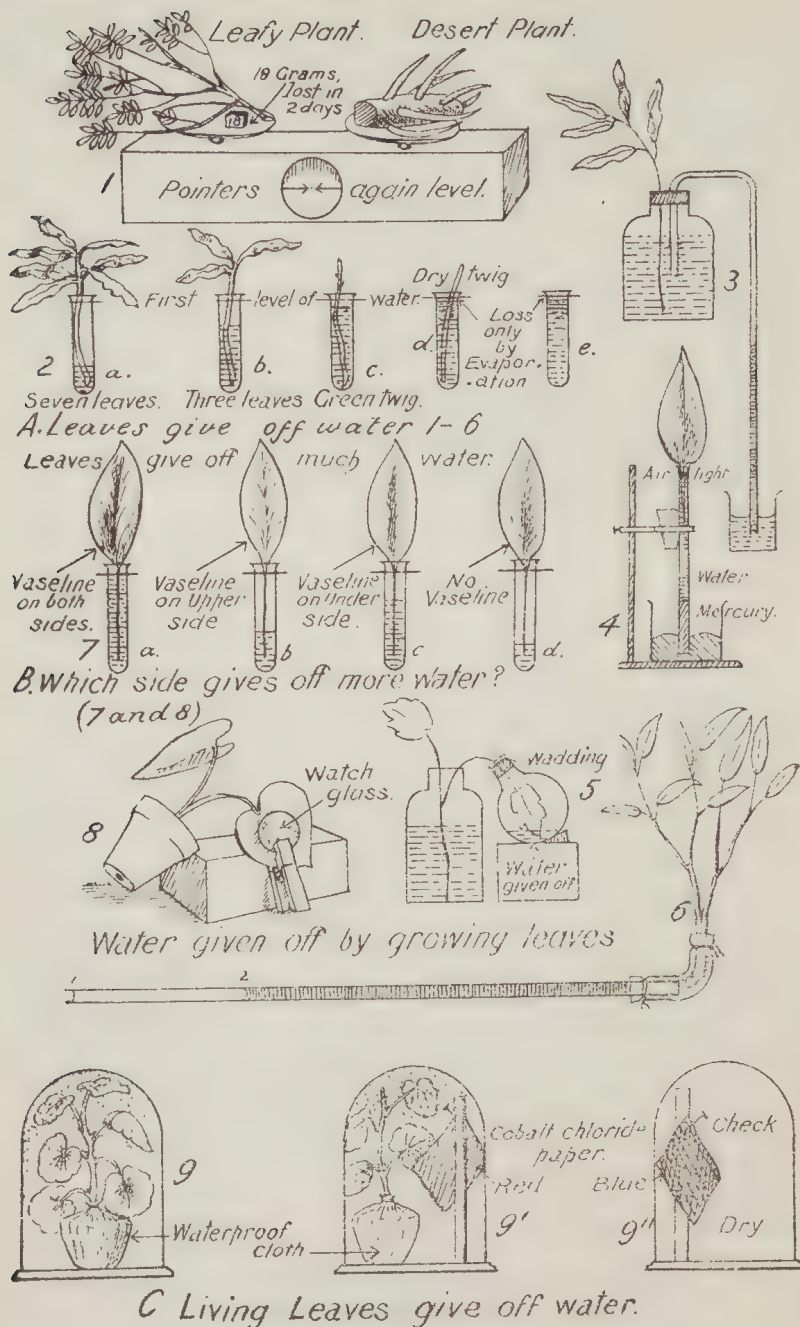 Leafy Plant. Desert Plant.
18 Grams,
lost in
2 days
18
1
Pointers again level.
3
First level of water.
Dry twig
Loss
only
by
Evapor-
-ation
2 a. b. c. d. e.
Seven leaves. Three leaves Green twig.
A. Leaves give off water 1-6
Leaves give off much water.
Air tight
Vaseline
on both
sides.
Vaseline
on Upper
side
Vaseline
on Under
side.
No
Vaseline
Water
Mercury.
4
7 a. b c d.
B. Which side gives off more water?
(7 and 8)
Watch
glass.
8
Wadding
5
Water
given off
6
Water given off by growing leaves
1 2
9
Waterproof
cloth
Cobalt chloride
paper.
Red
9'
Check
Blue
9" Dry
C Living Leaves give off water.